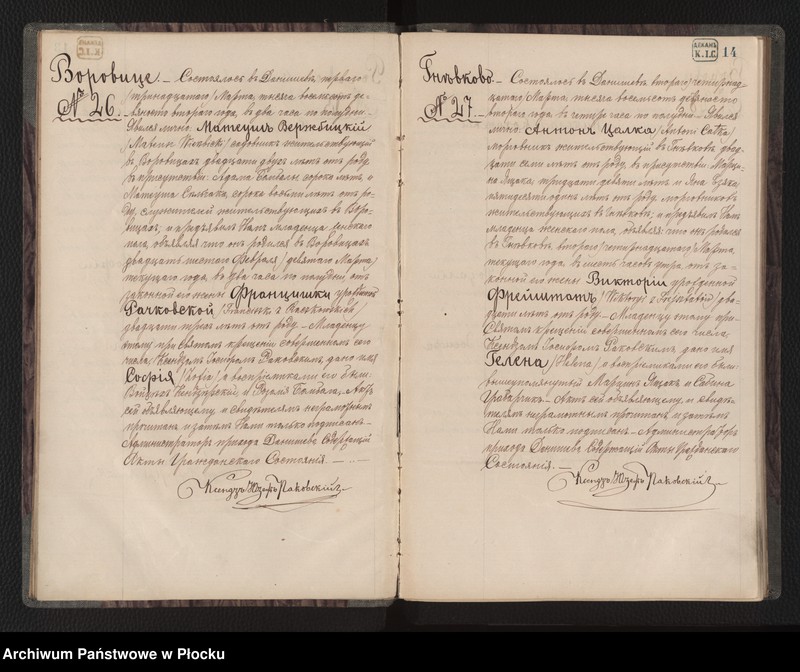 Воровице.
№ 26.
Состоялось въ Данишевѣ перваго
/тринадцатаго/ Марта, тысяча восемьсотъ де-
вяносто втораго года, въ два часа по полудни.
Явился лично: Матеушъ Вержбицкій
/Mateusz
жительствующій
въ Воровицахъ двадцати двухъ лѣтъ отъ роду,
въ присутствіи: Адама Бомбалы, сорока лѣтъ, и
Матеуша сорока восьми лѣтъ отъ ро-
ду, жительствующихъ въ Воро-
вицахъ, и предъявилъ Намъ младенца женскаго
пола, объявляя что онъ родился въ Воровицахъ
двадцать шестаго Февраля /девятаго Марта/
текущаго года, въ два часа по полудни, отъ
законной его жены Францишки урожденной
Рачковской /Franciszki z
двадцати трехъ лѣтъ отъ роду. Младенцу
этому при Святомъ крещеніи совершенномъ сего
числа, Ксендзомъ Раковскимъ, дано имя
Софія /Zofia/, а воспріемниками его были:
Войцехъ и Бомбала. Актъ
сей объявляющему и свидѣтелямъ неграмотнымъ
прочитанъ, и затѣмъ Нами только подписанъ.
Администраторъ прихода Данишева Содержащій
Акты Гражданскаго Состоянія.
Ксендзъ Юзефъ Раковскій
ДѢКАНЪ
К.І.С.
14
Гнѣвково.
№ 27.
Состоялось въ Данишевѣ втораго /четырнад-
цатаго/ Марта, тысяча восемьсотъ девяносто
втораго года, въ четыре часа по полудни. Явился
лично: Антонъ Цалка /Antoni Całka/
жительствующій въ Гнѣвковѣ, двад-
цати семи лѣтъ отъ роду, въ присутствіи: Марци-
на тридцати девяти лѣтъ, и Яна
пятидесяти одного лѣтъ отъ роду,
жительствующихъ въ Гнѣвковѣ; и предъявилъ Намъ
младенца женскаго пола, объявляя: что онъ родился
въ Гнѣвковѣ, втораго /четырнадцатаго/ Марта,
текущаго года, въ шесть часовъ утра, отъ за-
конной его жены Викторіи урожденной
Фрейштатъ /Wiktoryi z два-
дцати лѣтъ отъ роду. Младенцу этому при
Святомъ крещеніи совершенномъ сего числа
Ксендзомъ Раковскимъ, дано имя
Гелена /Helena/, а воспріемниками его были:
вышеупомянутый Марцинъ и
Актъ сей объявляющему, и свидѣ-
телямъ неграмотнымъ прочитанъ, и затѣмъ
Нами только подписанъ. Администраторъ
прихода Данишева Содержащій Акты Гражданскаго
Состоянія.
Ксендзъ Юзефъ Раковскій
Archiwum Państwowe w Płocku